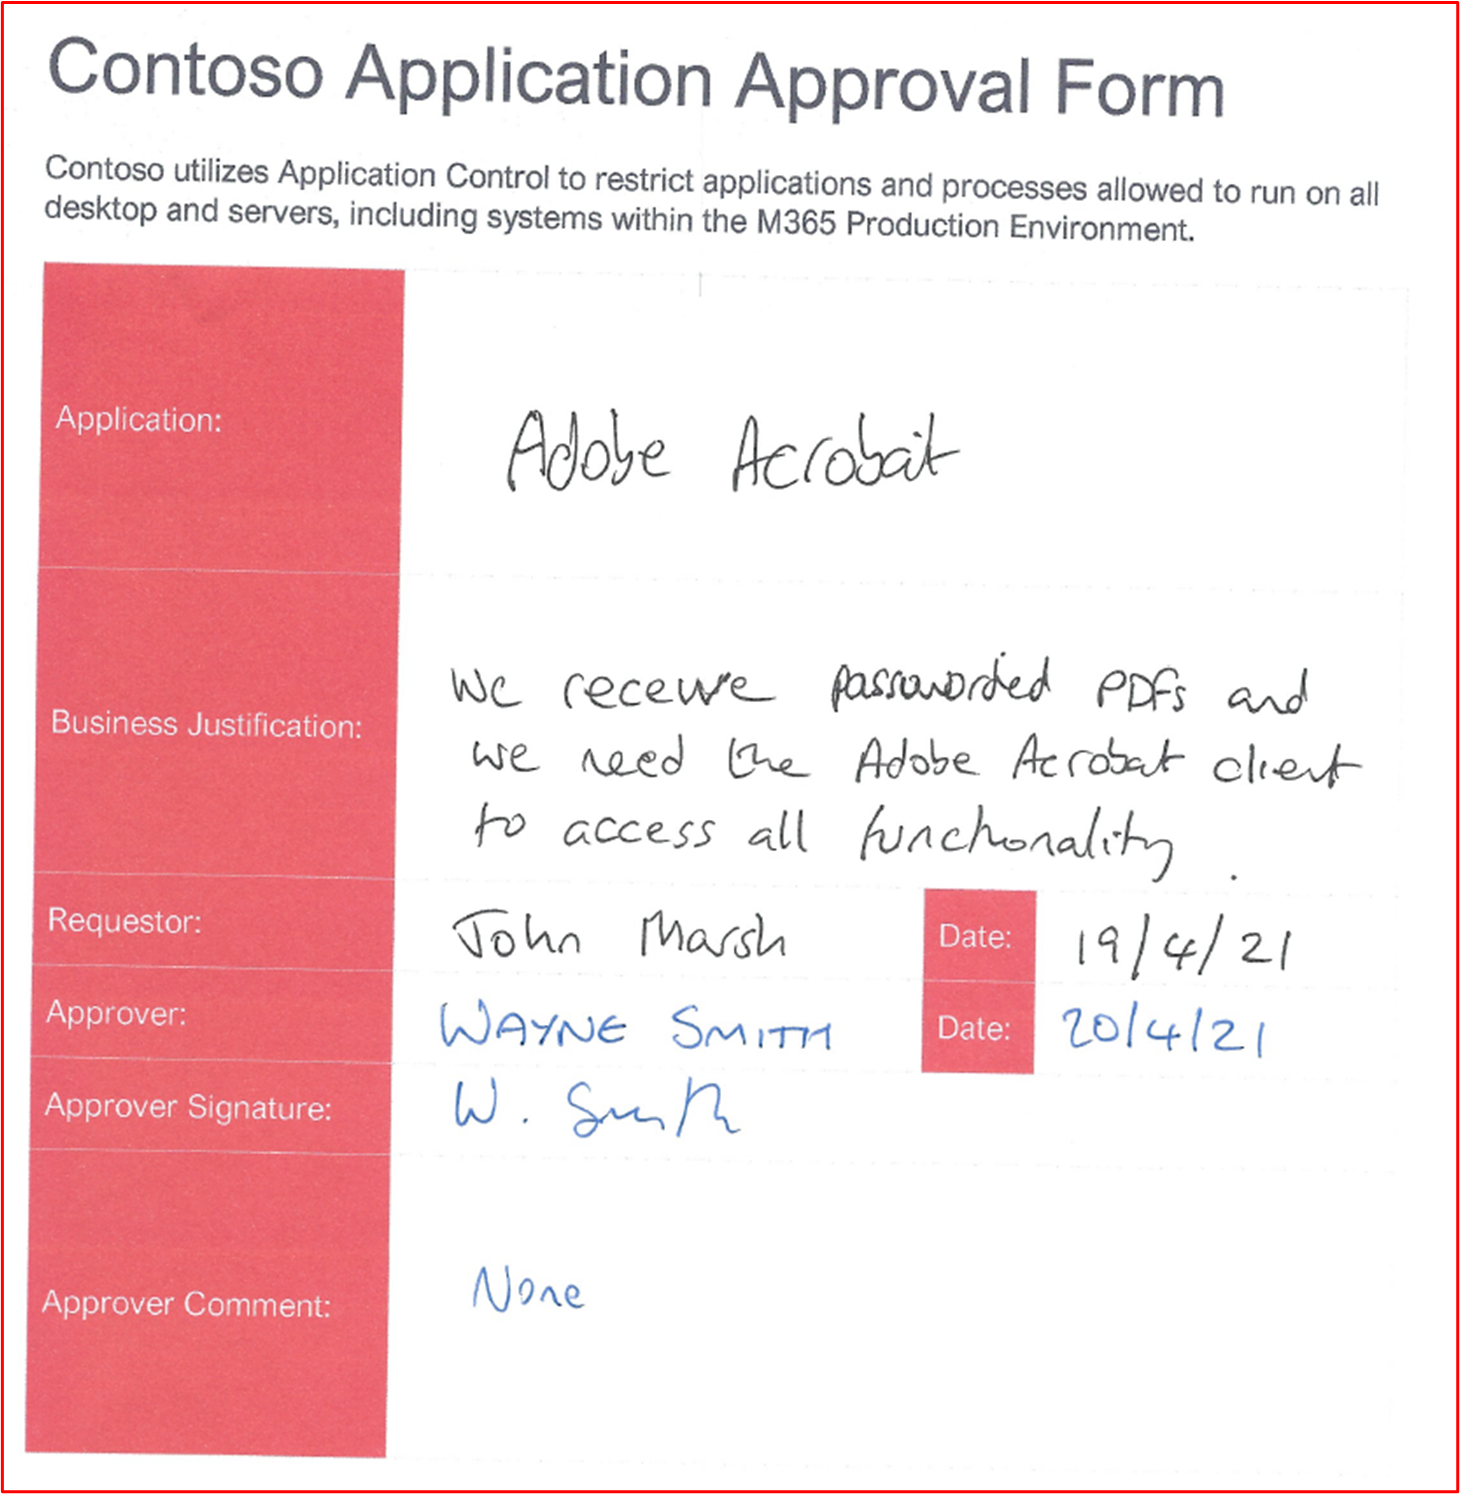 Contoso Application Approval Form
Contoso utilizes Application Control to restrict applications and processes allowed to run on all
desktop and servers, including systems within the M365 Production Environment.
Application:
Adobe Acrobat
Business Justification:
We receive passworded PDFs and
we need the Adobe Acrobat client
to access all functionality.
Requestor:
John Marsh
Date:
19/4/21
Approver:
WAYNE SMITH
Date:
20/4/21
Approver Signature:
W. Smith
Approver Comment:
None